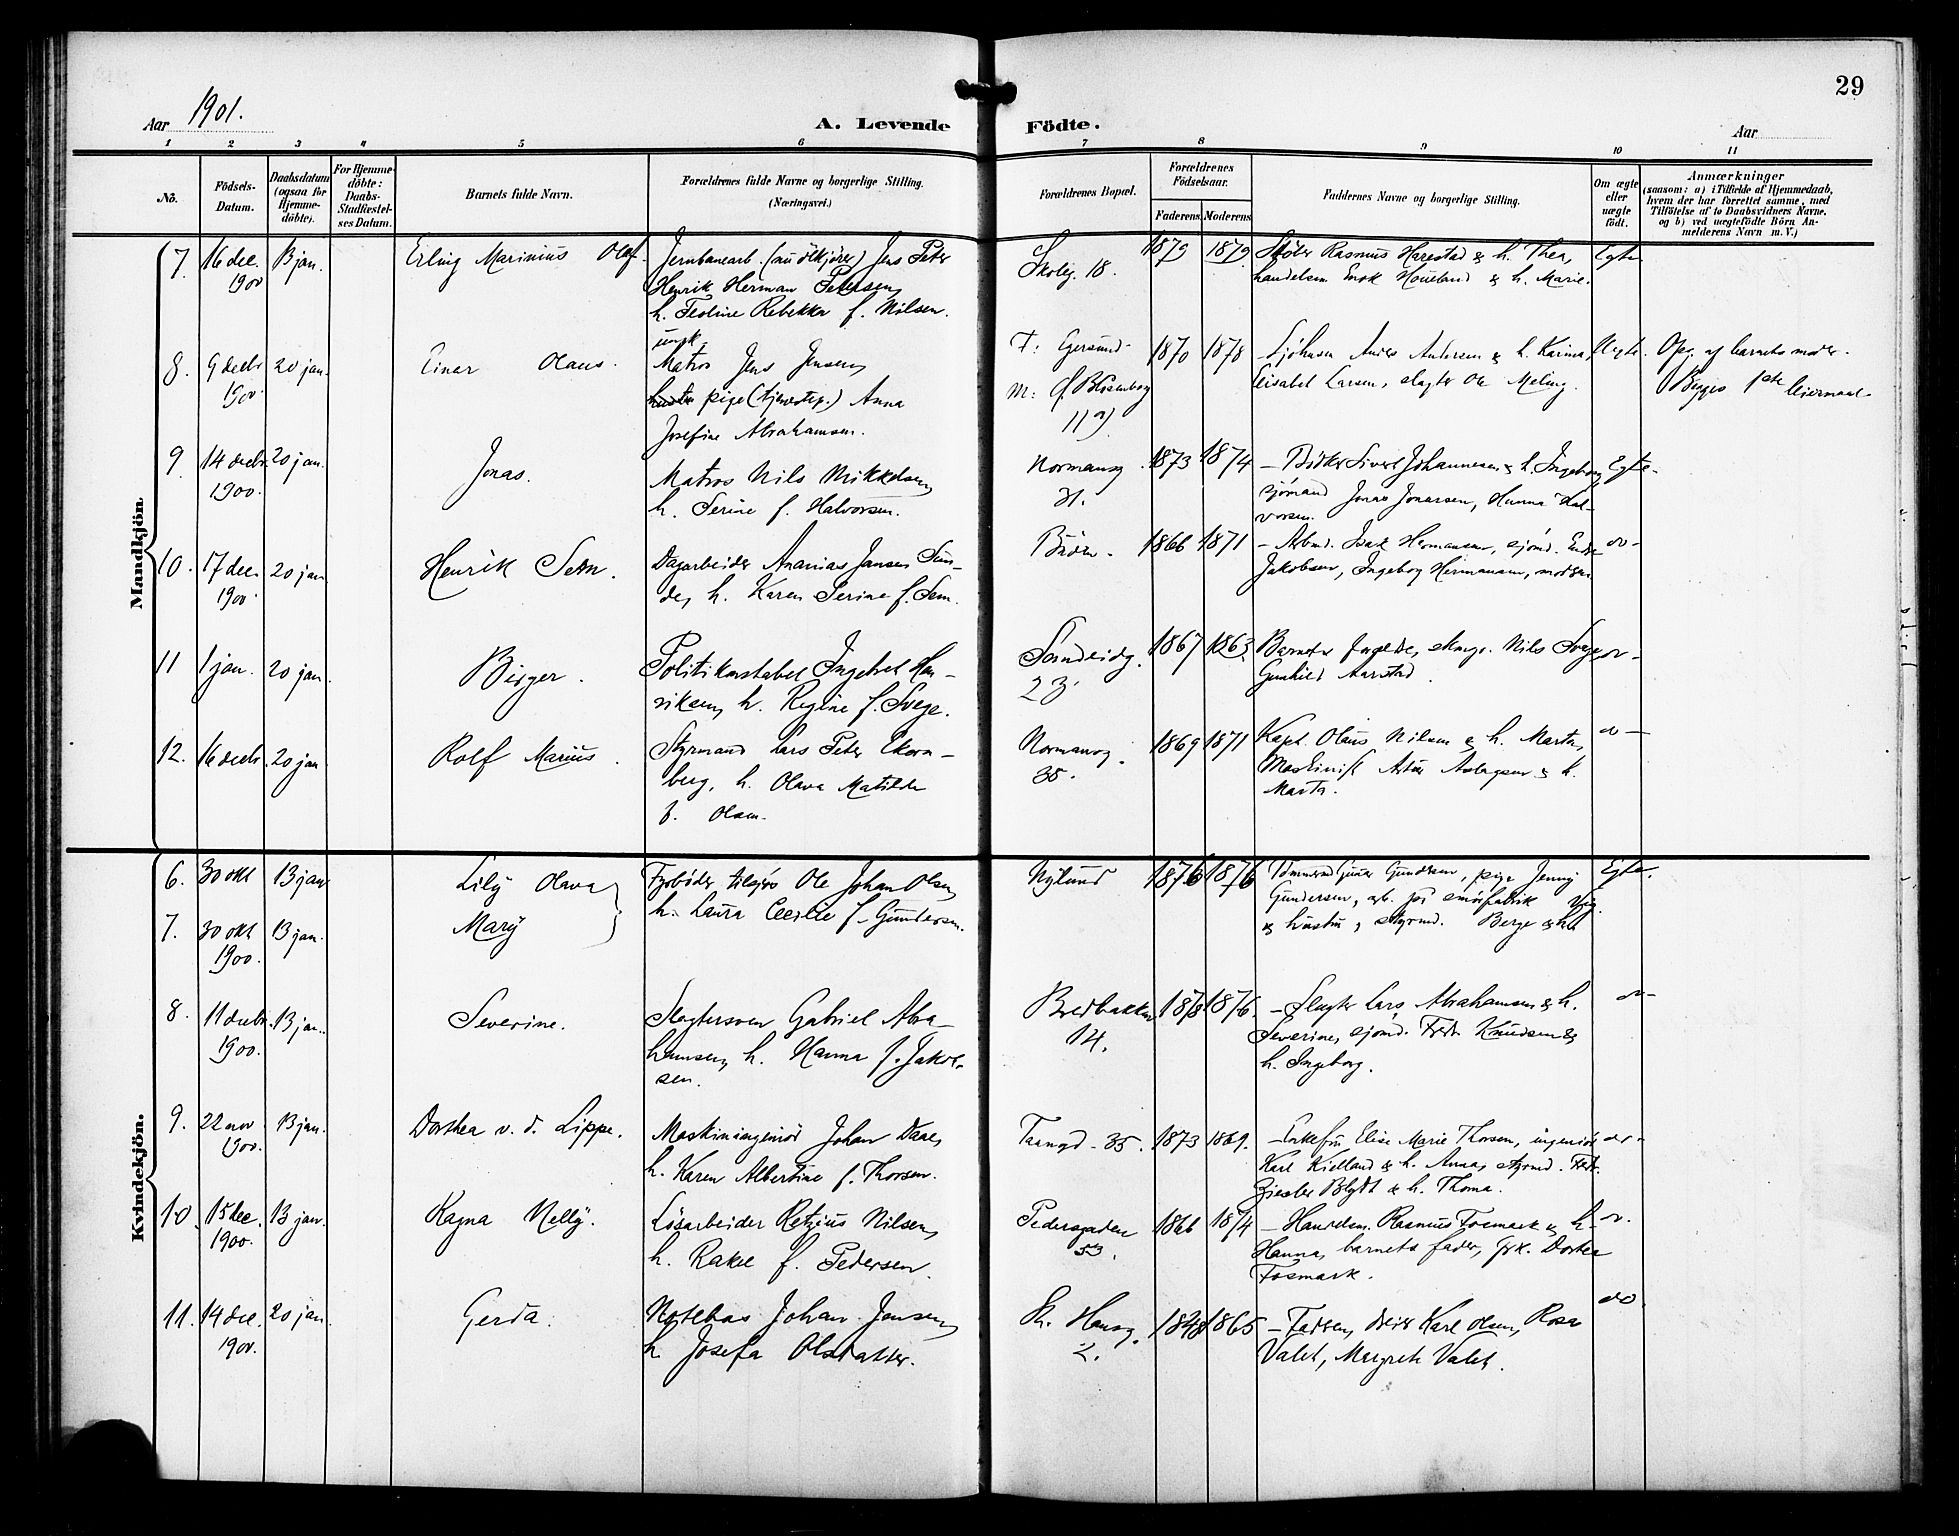 29
Aar 1901.
A. Levende Födte.
Aar
1 2 3 4 5 6 7 8 9 10 11
No.
Födsels-Datum.
Daabsdatum (ogsaa for Hjemme-döbte).
For Hjemme-döbte: Daabs-Stadfæstel-ses Datum.
Barnets fulde Navn.
Forældrenes fulde Navne og borgerlige Stilling. (Næringsvei.)
Forældrenes Bopæl.
Forældrenes Födselsaar.
Faderens Moderens
Faddernes Navne og borgerlige Stilling.
Om ægte eller uægte födt.
Anmærkninger
(saasom: a) i Tilfælde af Hjemmedaab,
hvem der har forrettet samme, med
Tilföielse af to Daabsvidners Navne,
og b) ved uægtefödte Börn An-
melderens Navn m. V.)
Mandkjön.
7. 16 dec. 1900 13 jan. Erling Marinius Olaf.
Jernbanearb. Jens Peter
Henrik Herman Petersen,
h. Teoline Rebekka f. Nilsen.
Skoleg. 18. 1879 1879
Rasmus Harestad & h. Thea,
handelsm. Enok Haueland & h. Marie.
Egte
8. 9 decbr 1900 20 jan. Einar Olaus.
ungk.
Matros Jens Jensen,
pige (tjenestep.) Anna
Josefine Abrahamsen.
F: Egersund
M: Blåsenborg
11
1870 1878
Andersen & h. Karina,
Elisabet Larsen, slagter Ole Meling.
Uegte.
Opg. af barnets moder.
Begges 1ste leiermaal.
9 14 decbr. 1900. 20 jan. Jonas.
Matros Nils Mikkelsen,
h. Serine f. Halvorsen.
Normansg. 31. 1873 1874
Sivert Johannesen & h. Ingeborg,
sjömand Jonas Jonassen, Hanna Hal-
vorsen.
Egte
10. 17 dec. 1900. 20 jan Henrik Sem.
Dagarbeider Ananias Jansen Sun-
de, h. Karen Serine f. Sem.
1866 1871
Hermansen, sjömd.
Jakobsen, Ingeborg Hermansen, moderen
do
11 1 jan. 20 jan. Birger.
Politikonstabel Ingebret Hen-
riksen, h. Regine f. Svege.
Sandeidg. 23. 1867 1863.
Barnets forældre, Nils Svege,
Gunhild Aarstad.
do
12. 16 decb. 20 jan Rolf Marius.
Styrmand Lars Peter Ekorn-
berg, h. Olava Matilde
f. Olsen.
Normansg. 35. 1869 1871
Kapt. Olaus Nilsen & h. Marta,
Maskinist Artur Aslagsen & h.
Marta.
do
Kvindekjön.
6. 30 okt 13 jan Lily Olava
7. 30 okt 1900. 13 jan. Mary
Fyrböder tilsjøs Ole Johan Olsen,
h. Laura Cecilie f. Gundersen.
Nylund 1876 1876
Gundersen, pige Jenny
Gundersen, arb. på smörfabrik
& hustru, styrmd. Berge
Egte.
8. 11 decbr. 1900. 13 jan. Severine.
Slagtersven Gabriel Abra-
hamsen, h. Hanna f. Jakob-
sen.
Bredbakken 14. 1878 1876.
Slagter Lars Abrahamsen & h.
Severine, sjömd. Fredr. Knudsen &
h. Ingeborg.
do
9. 22 nov 1900. 13 jan. Dorthea v. d. Lippe.
Maskiningeniör Johan Daae,
h. Karen Albertine f. Thorsen.
35. 1873 1869.
Enkefru Elise Marie Thorsen, ingeniör
Karl Kielland & h. Anna, styrmd. Fredr.
Ziesler Blydt & h. Thoma.
do
10. 15 dec. 1900. 13 jan. Ragna Nelly.
Lösarbeider Retzius Nilsen,
h. Rakel f. Pedersen.
Pedersgaden 53. 1866 1874
Handelsm. Rasmus Fosmark & h.
Hanna, barnets fader, frk. Dortea
Fosmark.
do.
11. 14 dec. 1900. 20 jan. Gerda.
Notebas Johan Jensen,
h. Josefa
St. Hansg. 2. 1848 1865
Faderen, Karl Olsen, Rosa
Valet, Margrete Valet.
do.